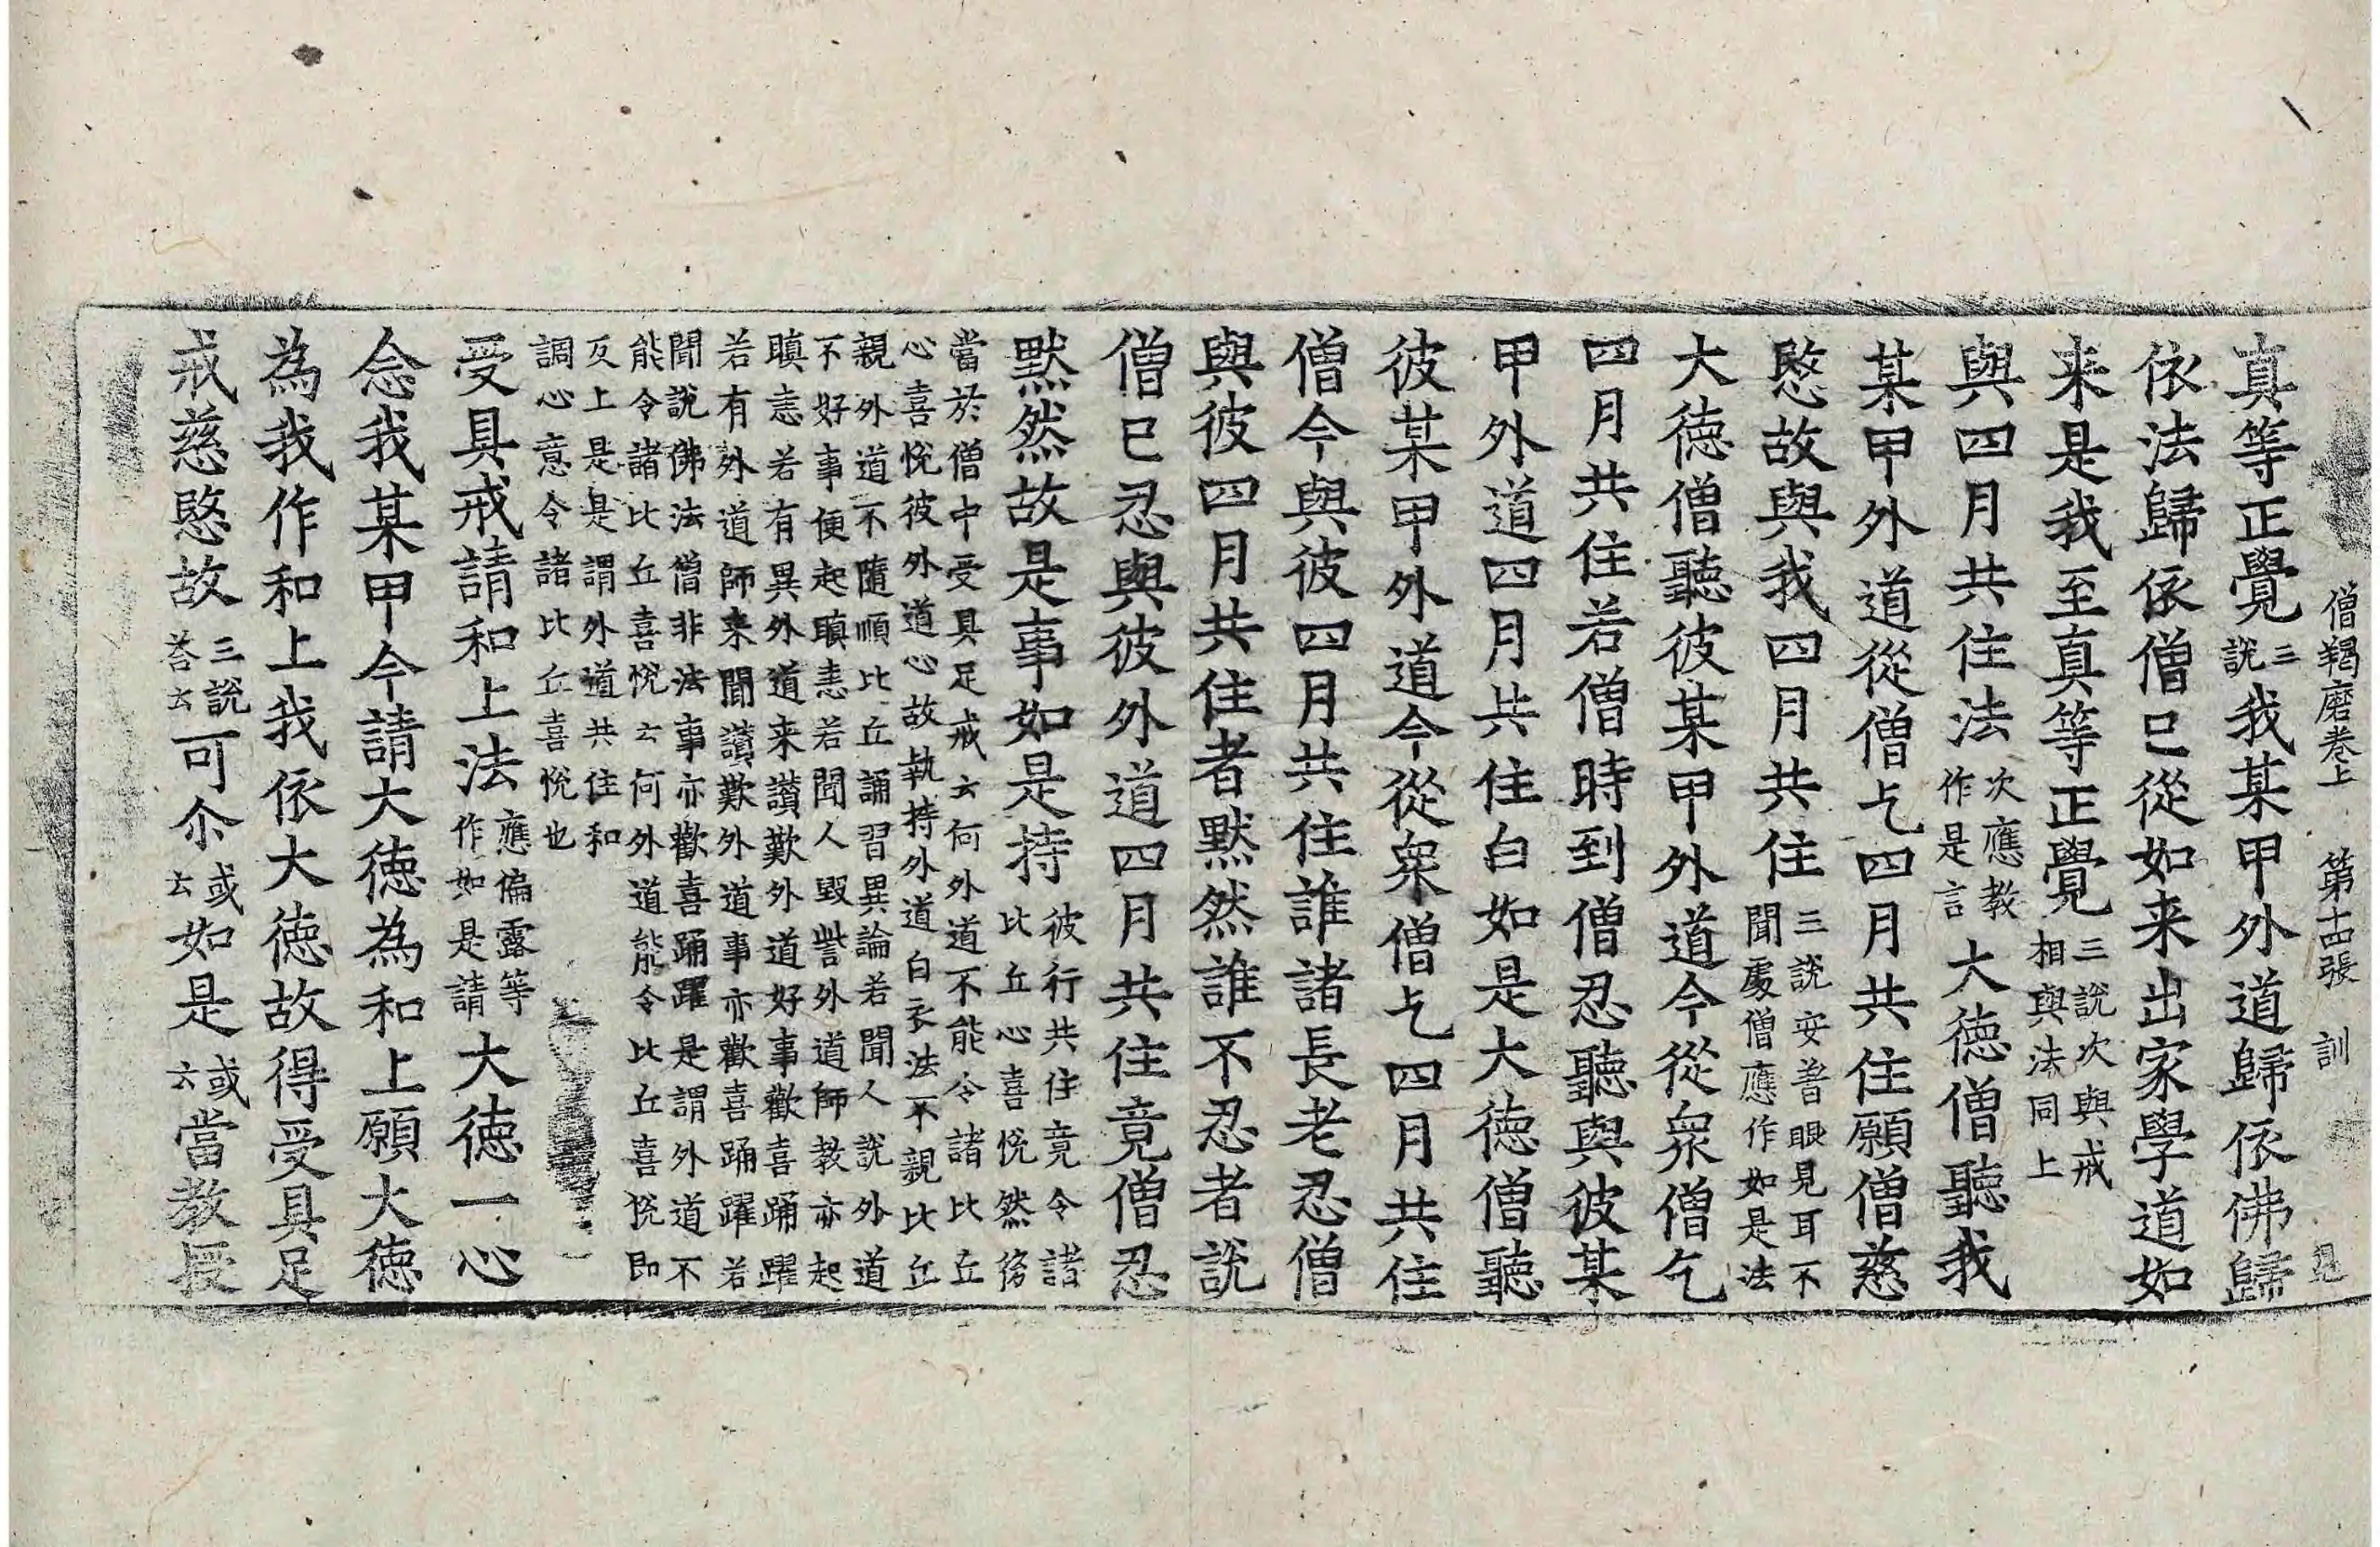 僧羯磨卷上　第十四張　訓
真等正覺三說我某甲外道歸依佛歸
依法歸依僧已從如来出家學道如
来是我至真等正覺三說次與戒相與法同上
與四月共住法次應教作是言大德僧聽我
某甲外道從僧乞四月共住願僧慈
愍故與我四月共住三說安着眼見耳不聞處僧應作如是法
大德僧聽彼某甲外道今從眾僧乞
四月共住若僧時到僧忍聽與彼某
甲外道四月共住白如是大德僧聽
彼某甲外道今從眾僧乞四月共住
僧今與彼四月共住誰諸長老忍僧
與彼四月共住者默然誰不忍者說
僧已忍與彼外道四月共住竟僧忍
默然故是事如是持彼行共住竟令諸比丘心喜悅然後
當於僧中受具足戒云何外道不能令諸比丘
心喜悅彼外道心故執持外道白衣法不親比丘
親外道不隨順比丘誦習異論若聞人說外道
不好事便起瞋恚若聞人毀訾外道師教亦起
瞋恚若有異外道来讃歎外道好事歡喜踊躍
若有外道師来聞讃歎外道事亦歡喜踊躍若
聞說佛法僧非法事亦歡喜踊躍是謂外道不
能令諸比丘喜悅云何外道能令比丘喜悅即
反上是是謂外道共住和
調心意令諸比丘喜悅也
受具戒請和上法應偏露等作如是請大德一心
念我某甲今請大德為和上願大德
為我作和上我依大德故得受具足
戒慈愍故三說荅云可尒或云如是或云當教授